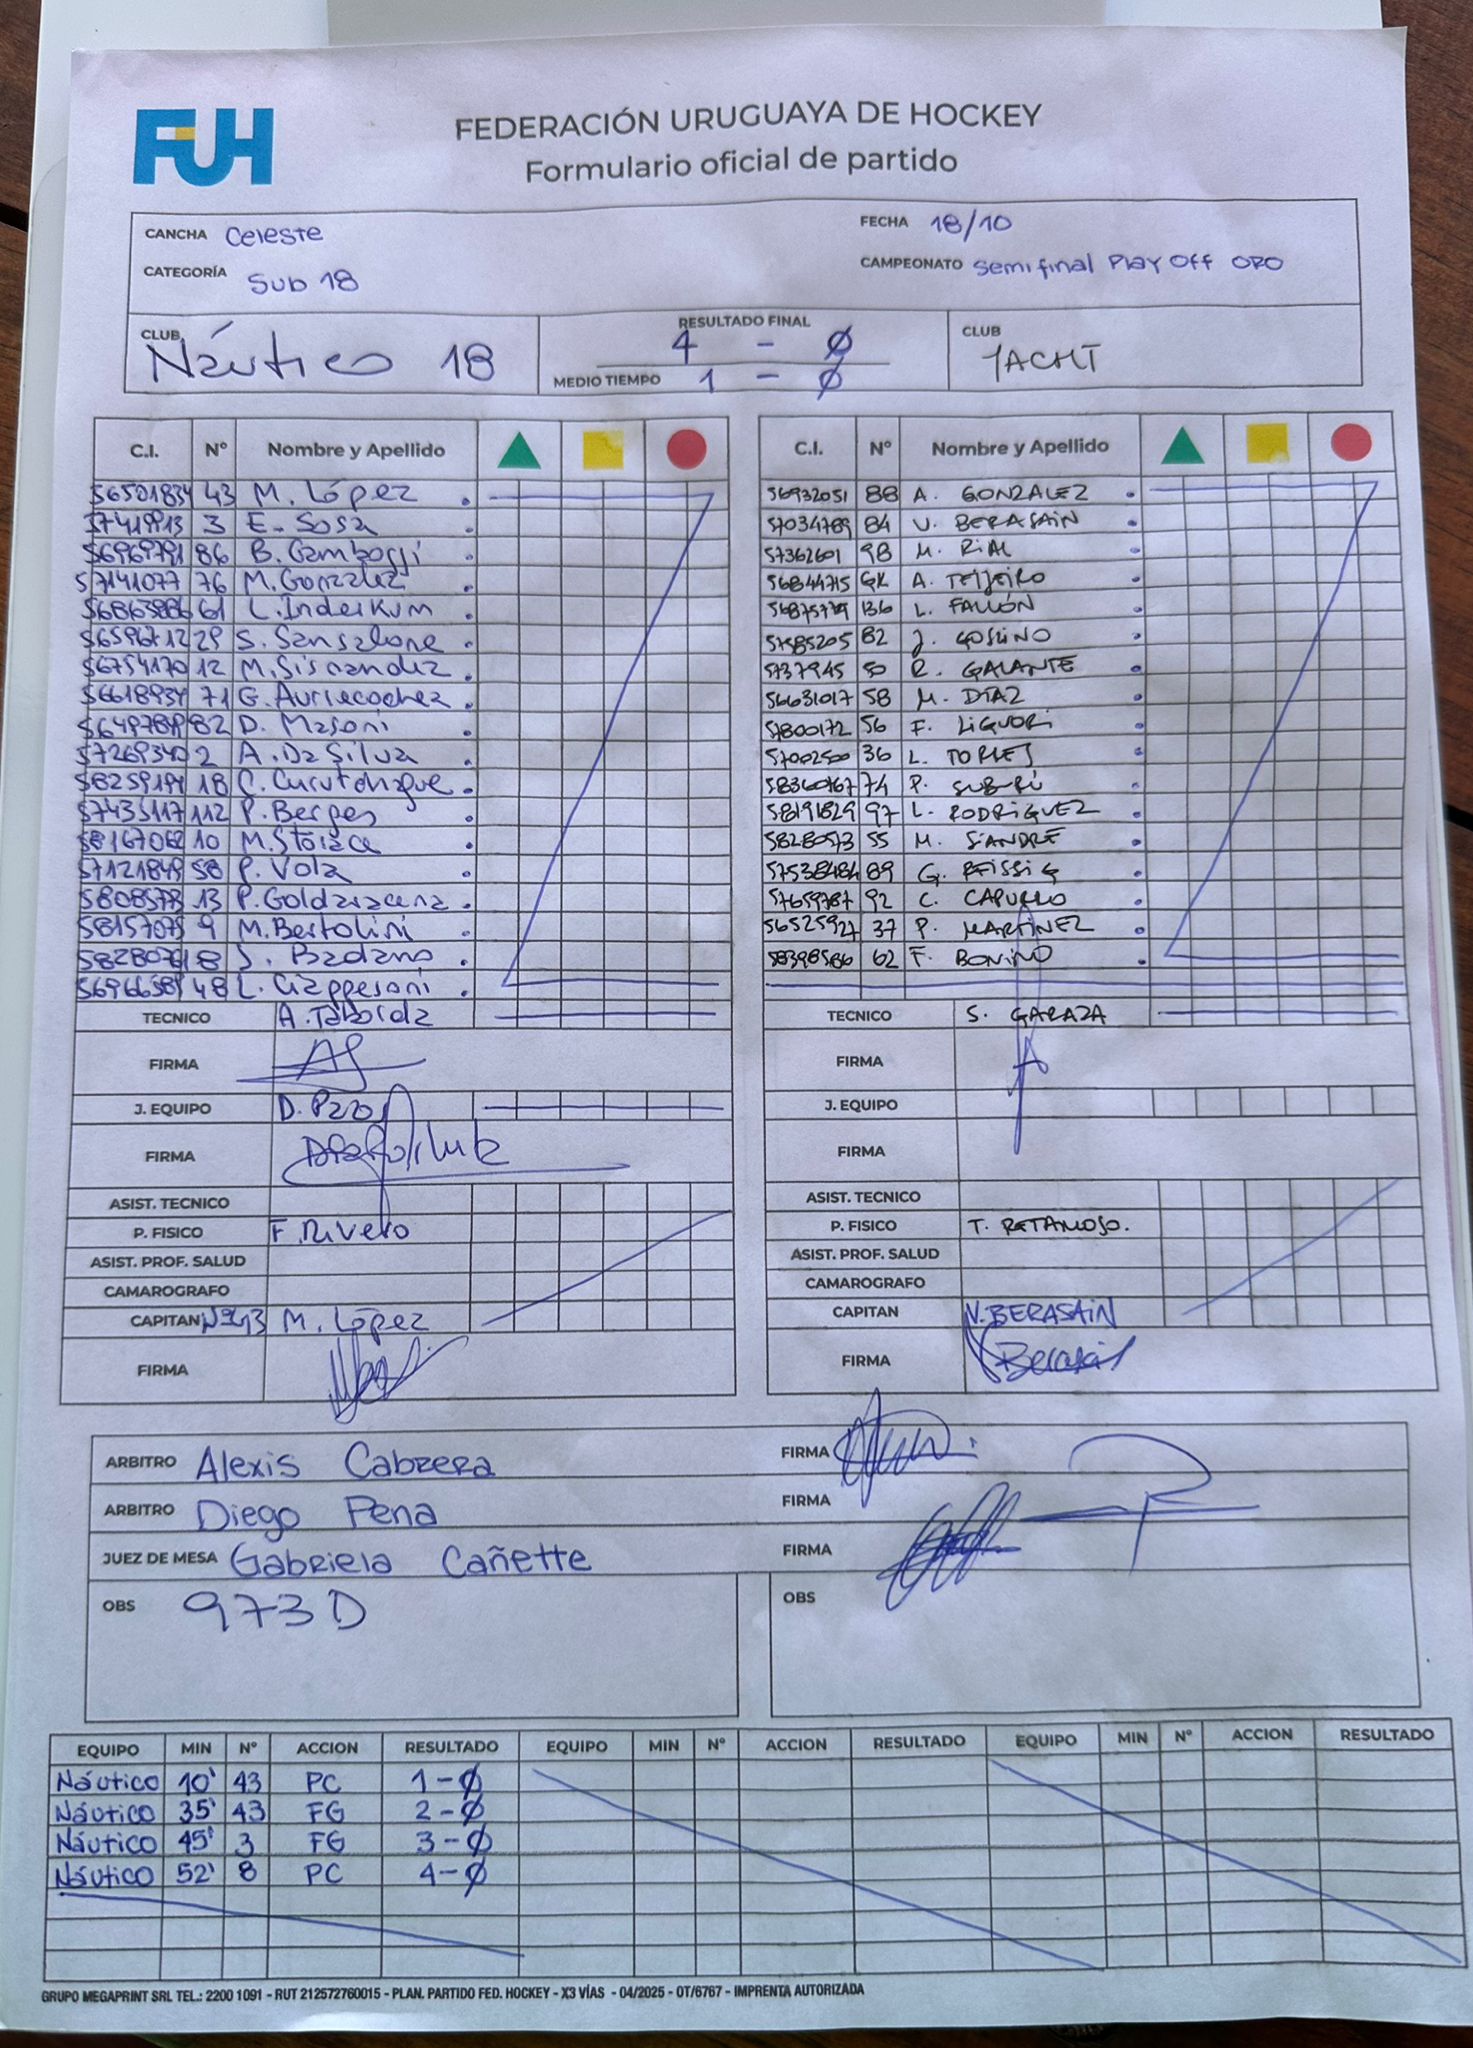 FUH
FEDERACIÓN URUGUAYA DE HOCKEY
Formulario oficial de partido
CANCHA Celeste
FECHA 18/10
CATEGORÍA Sub 18
CAMPEONATO Semifinal Play Off ORO
CLUB Náutico 18
RESULTADO FINAL 4 - Ø
MEDIO TIEMPO 1 - Ø
CLUB YACHT
C.I. Nº Nombre y Apellido
56501834 43 M. López
3 E. Sosa
86 B. Gamboggi
57141077 76 M. Gonzalez
61 L. Inderkum
29 S. Sansalone
56754170 12 M. Sisnandez
56618934 71 G. Aurrecochea
82 D. Masoni
57269340 2 A. Da Silva
58259194 18 C. Curutchague
57435117 112 P. Berges
58167062 10 M. Storace
57121849 58 P. Vola
58085773 13 P. Goldaracena
58157075 9 M. Bertolini
8 S. Badano
56966589 48 L. Giapperoni
TECNICO A. Taborda
FIRMA
J. EQUIPO D. Pzos
FIRMA
ASIST. TECNICO
P. FISICO F. Rivero
ASIST. PROF. SALUD
CAMAROGRAFO
CAPITAN Nº43 M. López
FIRMA
C.I. Nº Nombre y Apellido
56932051 88 A. GONZALEZ
57034789 84 V. BERASAIN
57362601 98 M. RIAL
56844715 GK A. TEIJEIRO
136 L. FALLÓN
57585205 82 J. GOSLINO
5737945 50 R. GALANTE
56631017 58 M. DIAZ
57800172 56 F. LIGUORI
57002500 36 L. TORRES
58360767 74 P. SUBURÚ
58191829 97 L. RODRIGUEZ
58280573 55 M. S'ANDRE
57538484 89 G. REISSIG
57659787 92 C. CAPURRO
56525927 37 P. MARTINEZ
58398586 62 F. BONINO
TECNICO S. GARAZA
FIRMA
J. EQUIPO
FIRMA
ASIST. TECNICO
P. FISICO T. RETAMOSO.
ASIST. PROF. SALUD
CAMAROGRAFO
CAPITAN V. BERASAIN
FIRMA Berasain
ARBITRO Alexis Cabrera FIRMA
ARBITRO Diego Pena FIRMA
JUEZ DE MESA Gabriela Cañette FIRMA
OBS 973 D
OBS
EQUIPO MIN Nº ACCION RESULTADO EQUIPO MIN Nº ACCION RESULTADO EQUIPO MIN Nº ACCION RESULTADO
Náutico 10' 43 PC 1-Ø
Náutico 35' 43 FG 2-Ø
Náutico 45' 3 FG 3-Ø
Náutico 52' 8 PC 4-Ø
GRUPO MEGAPRINT SRL TEL.: 2200 1091 - RUT 212572760015 - PLAN. PARTIDO FED. HOCKEY - X3 VÍAS - 04/2025 - OT/6767 - IMPRENTA AUTORIZADA